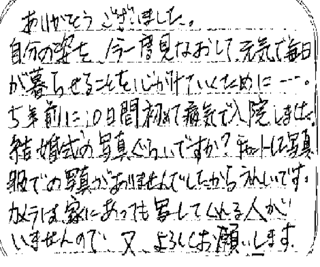 ありがとうございました。
自分の姿を今一度見なおして元気で毎日
が暮らせることを心がけていくために…。
5年前に10日間初めて病気で入院しました。
結婚式の写真ぐらいですか?チョットした写真
服での写真がありませんでしたからうれしいです。
カメラは家にあっても写してくれる人が
いませんので、又よろしくお願いします。